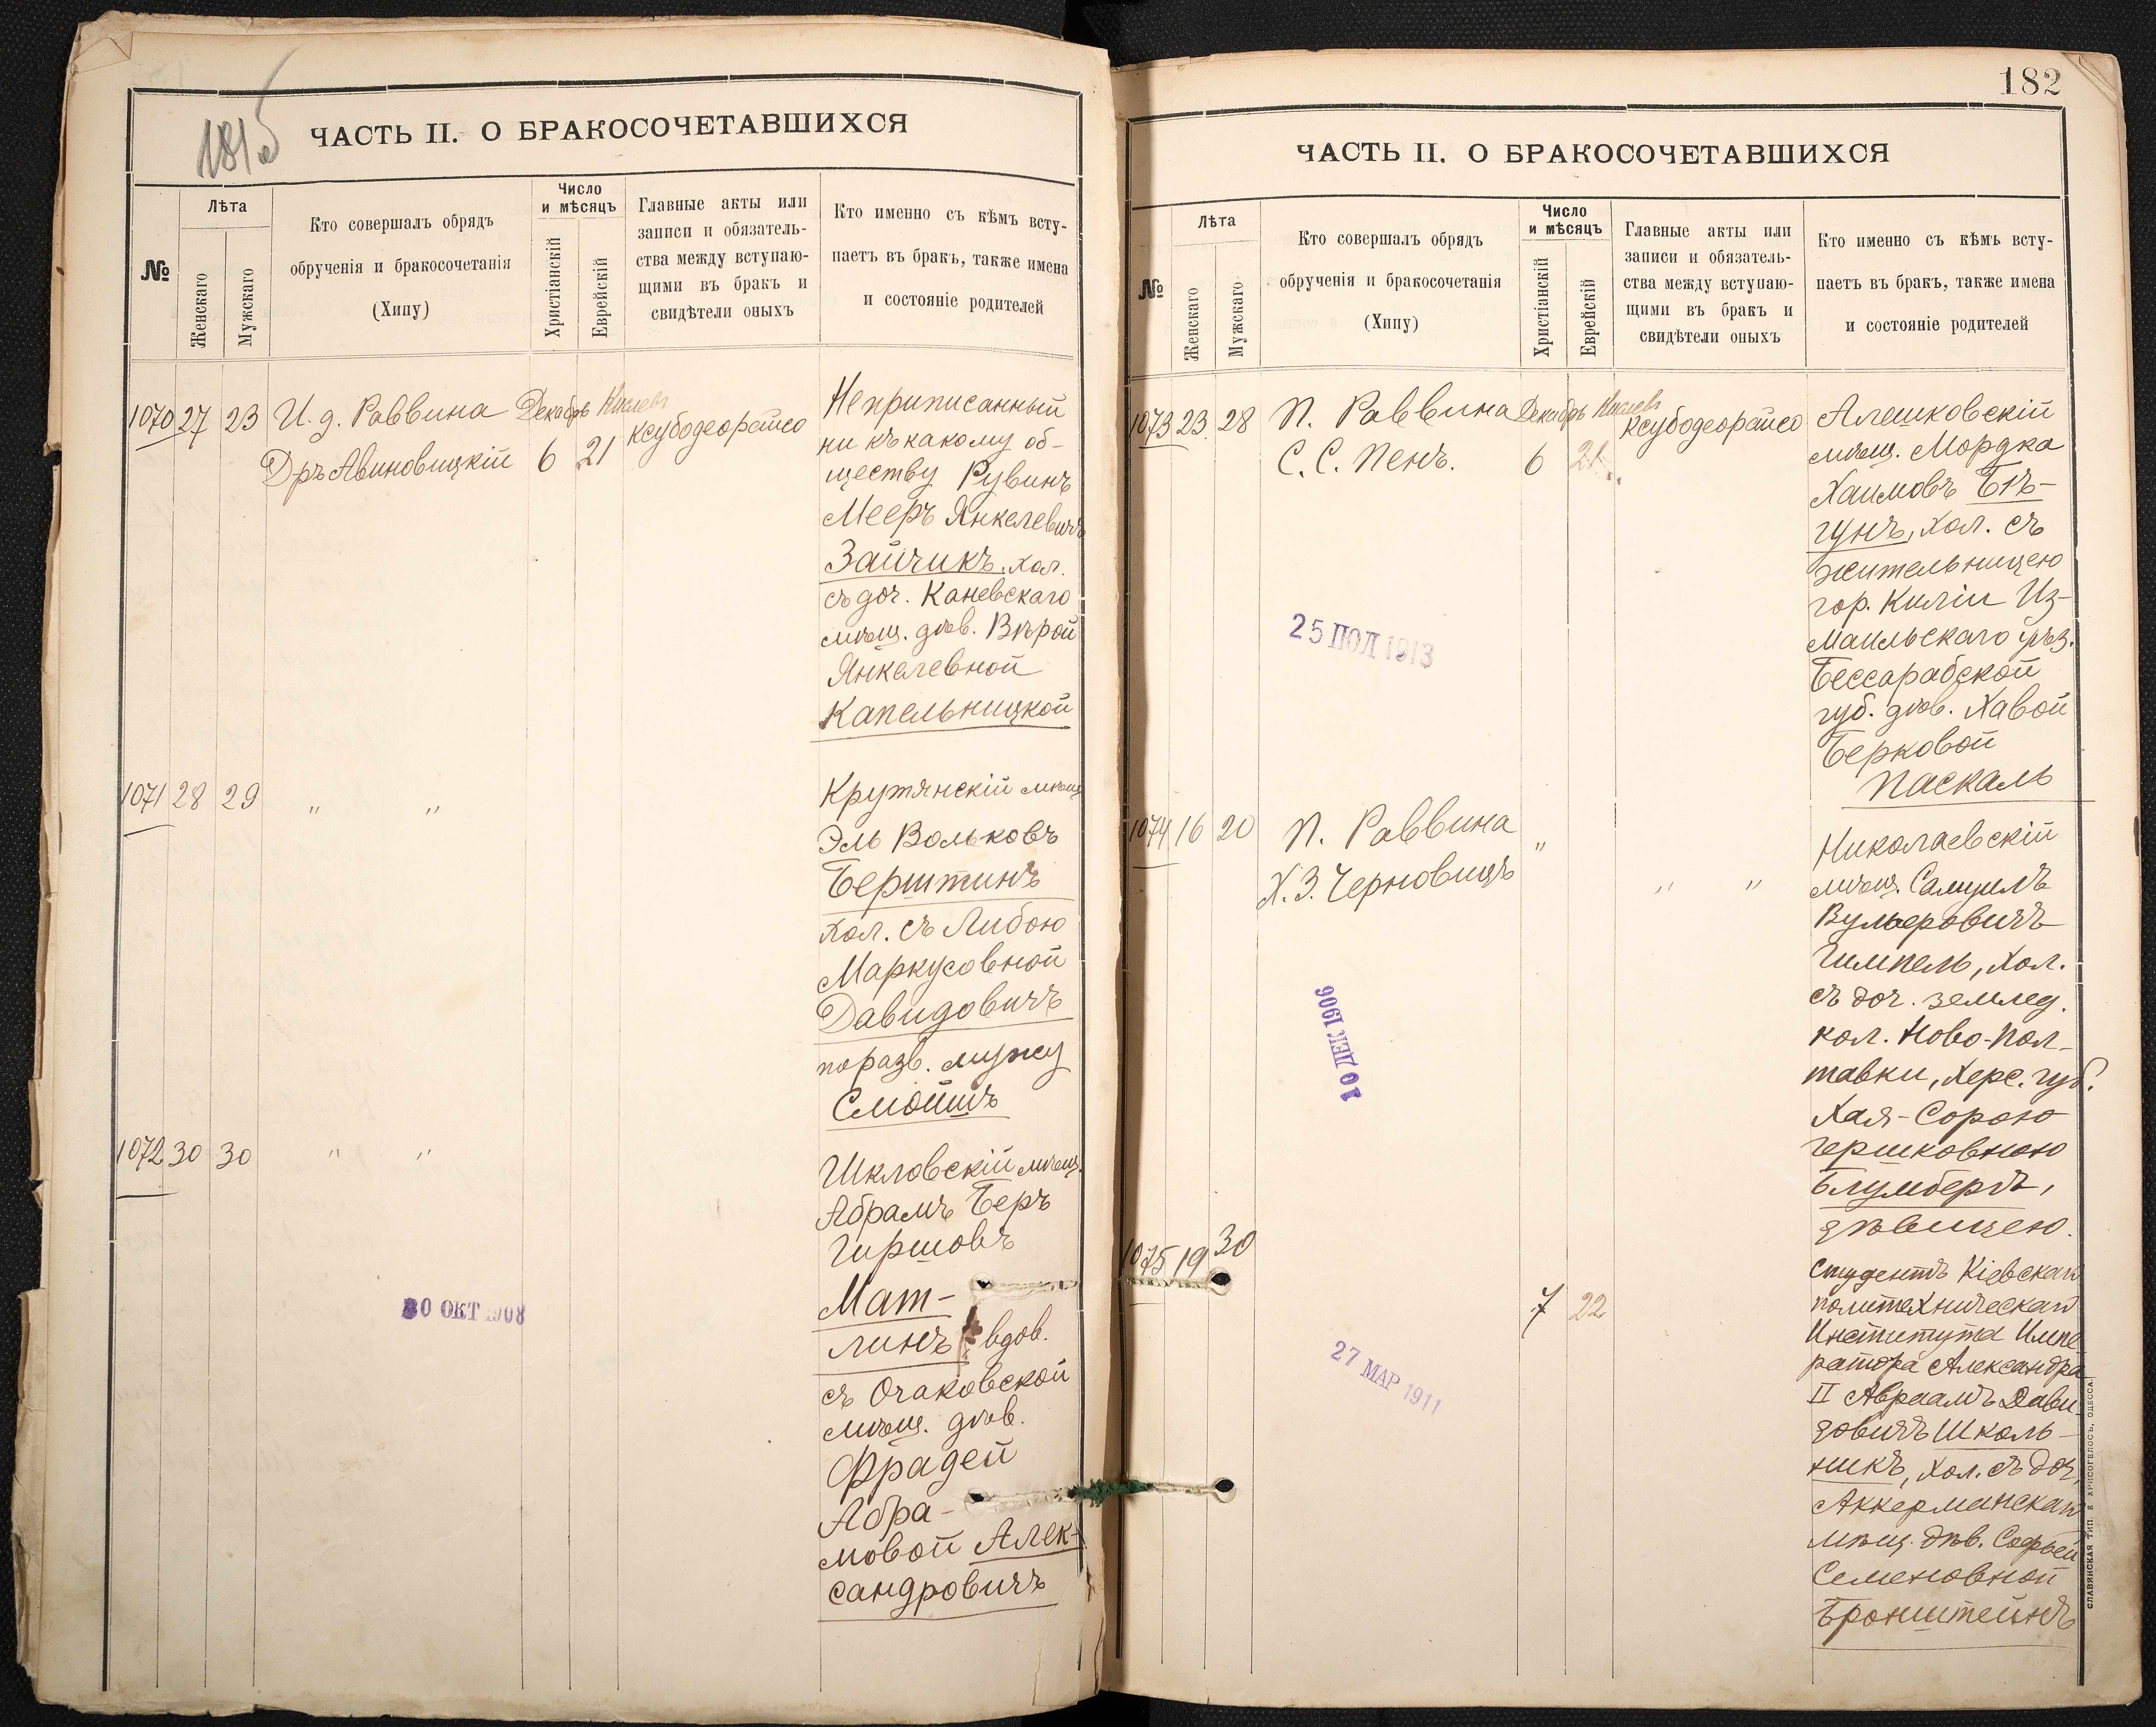 181б
ЧАСТЬ II. О БРАКОСОЧЕТАВШИХСЯ
№
Лѣта
Женскаго
Мужскаго
Кто совершалъ обрядъ
обрученія и бракосочетанія
(Хипу)
Число
и мѣсяцъ
Христіанскій
Еврейскій
Главные акты или
записи и обязатель-
ства между вступаю-
щими въ бракъ и
свидѣтели оныхъ
Кто именно съ кѣмъ всту-
паетъ въ бракъ, также имена
и состояніе родителей
1070 27 23 И. д. Раввина Декабрь Кислевъ
Дръ Авиновицкій 6 21
Ксубодеорейсо
Неприписанный
ни къ какому об-
ществу Рувинъ
Мееръ Янкелевичъ
Зайчикъ, хол.
съ доч. Каневскаго
мѣщ. дѣв. Вѣрой
Янкелевной
Капельницкой
1071 28 29 " "
Крутянскій мѣщ.
Эль Вольковъ
Берштинъ
хол. съ Либою
Маркусовной
Давидовичъ
по разв. мужу
1072 30 30 " "
Шкловскій мѣщ.
Абрамъ Беръ
Гиршовъ
Мат-
линъ вдов.
съ Очаковской
мѣщ. дѣв.
Фрадей
Абра-
мовой Алек-
сандровичъ
30 ОКТ 1908
182
ЧАСТЬ II. О БРАКОСОЧЕТАВШИХСЯ
№
Лѣта
Женскаго
Мужскаго
Кто совершалъ обрядъ
обрученія и бракосочетанія
(Хипу)
Число
и мѣсяцъ
Христіанскій
Еврейскій
Главные акты или
записи и обязатель-
ства между вступаю-
щими въ бракъ и
свидѣтели оныхъ
Кто именно съ кѣмъ всту-
паетъ въ бракъ, также имена
и состояніе родителей
1073 23 28 П. Раввина Декабрь Кислевъ
С. С. Пенъ. 6 21
Ксубодеорейсо
Алешковскій
мѣщ. Мордка
Хаимовъ Бѣ-
гунъ, хол. съ
жительницею
гор. Киліи Из-
маильскаго уѣз.
Бессарабской
губ. дѣв. Хавой
Берковой
Паскаль
25 ІЮЛ 1913
1074 16 20 П. Раввина "
Х. З. Черновицъ
" "
Николаевскій
мѣщ. Самуилъ
Вульфовичъ
Гимпель, хол.
съ доч. землед.
кол. Ново-Пол-
тавки, Херс. губ.
Хая-Сорою
Гершковною
Блумбергъ,
дѣвицею.
10 ДЕК 1906
1075 19 30
7 22
Студентъ Кіевскаго
политехническаго
Института Импе
ратора Александра
II Авраамъ Дави-
довичъ Школь-
никъ, хол. съ доч.
Аккерманскаго
мѣщ. дѣв. Софьей
Семеновной
Бронштейнъ
27 МАР 1911
СЛАВЯНСКАЯ ТИП. Е ХРИСОГЕЛОСЪ, ОДЕССА.